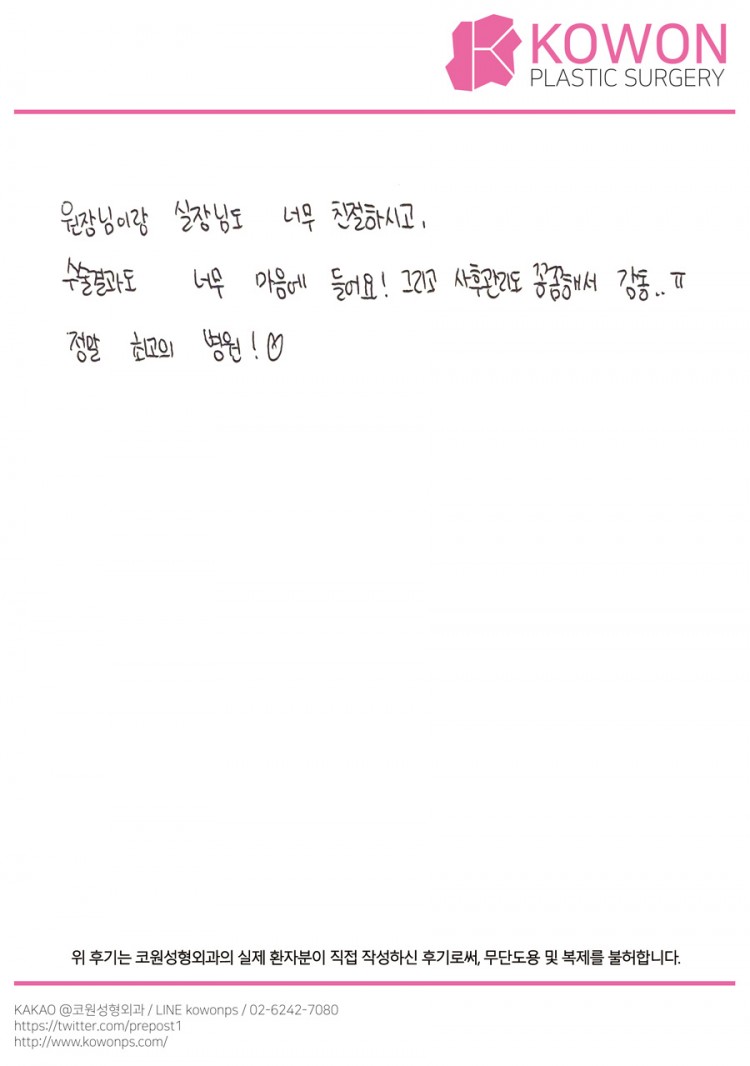 KOWON
PLASTIC SURGERY
원장님이랑 실장님도 너무 친절하시고,
수술결과도 너무 마음에 들어요! 그리고 사후관리도 꼼꼼해서 감동..ㅠ
정말 최고의 병원!
위 후기는 코원성형외과의 실제 환자분이 직접 작성하신 후기로써, 무단도용 및 복제를 불허합니다.
KAKAO @코원성형외과 / LINE kowonps / 02-6242-7080
https://twitter.com/prepost1
http://www.kowonps.com/